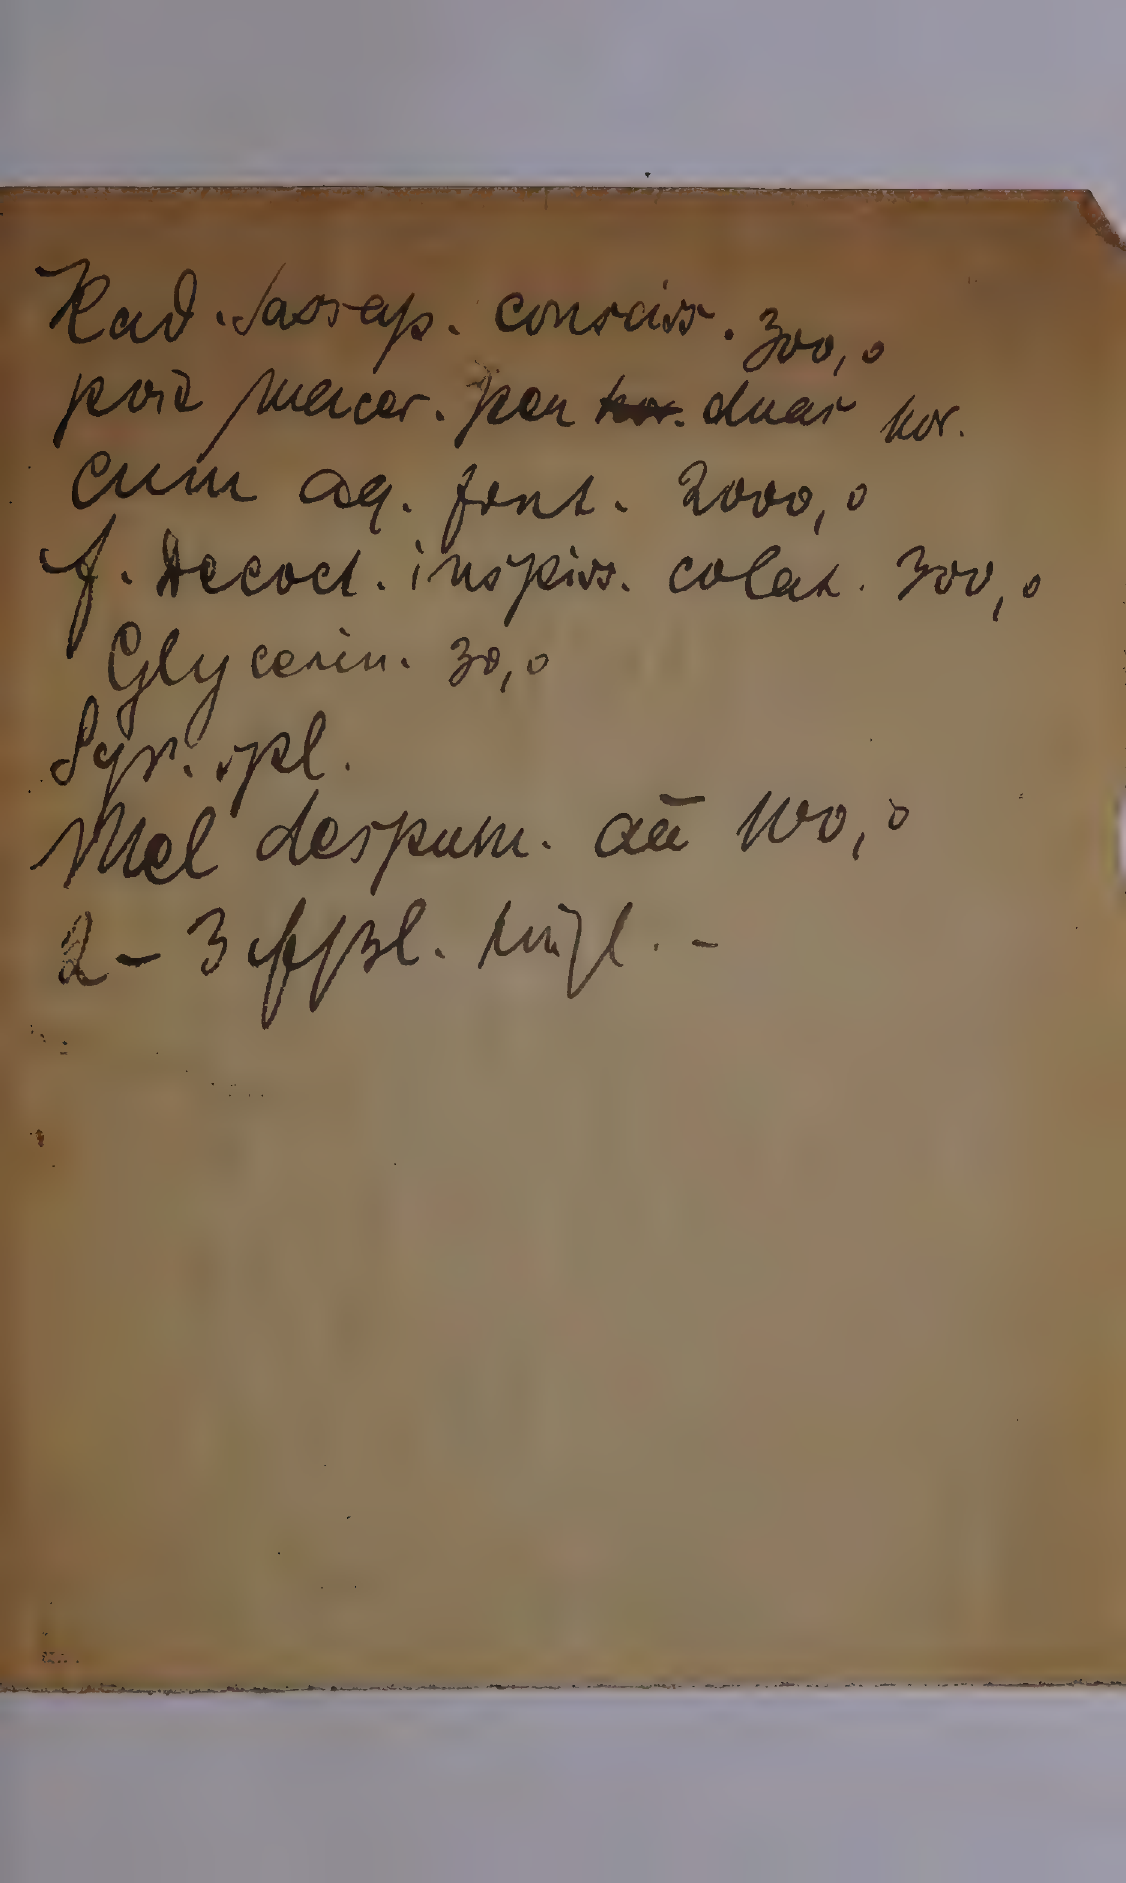 Rad. Sassap. consciss. 300,0
post macer. per hor. duas hor.
cum aq. font. 2000,0
f. Decoct. inspiss. colat. 300,0
Glycerin. 30,0
Syr. spl.
Mel despum. aā 100,0
2 – 3 Eßl. tägl. –